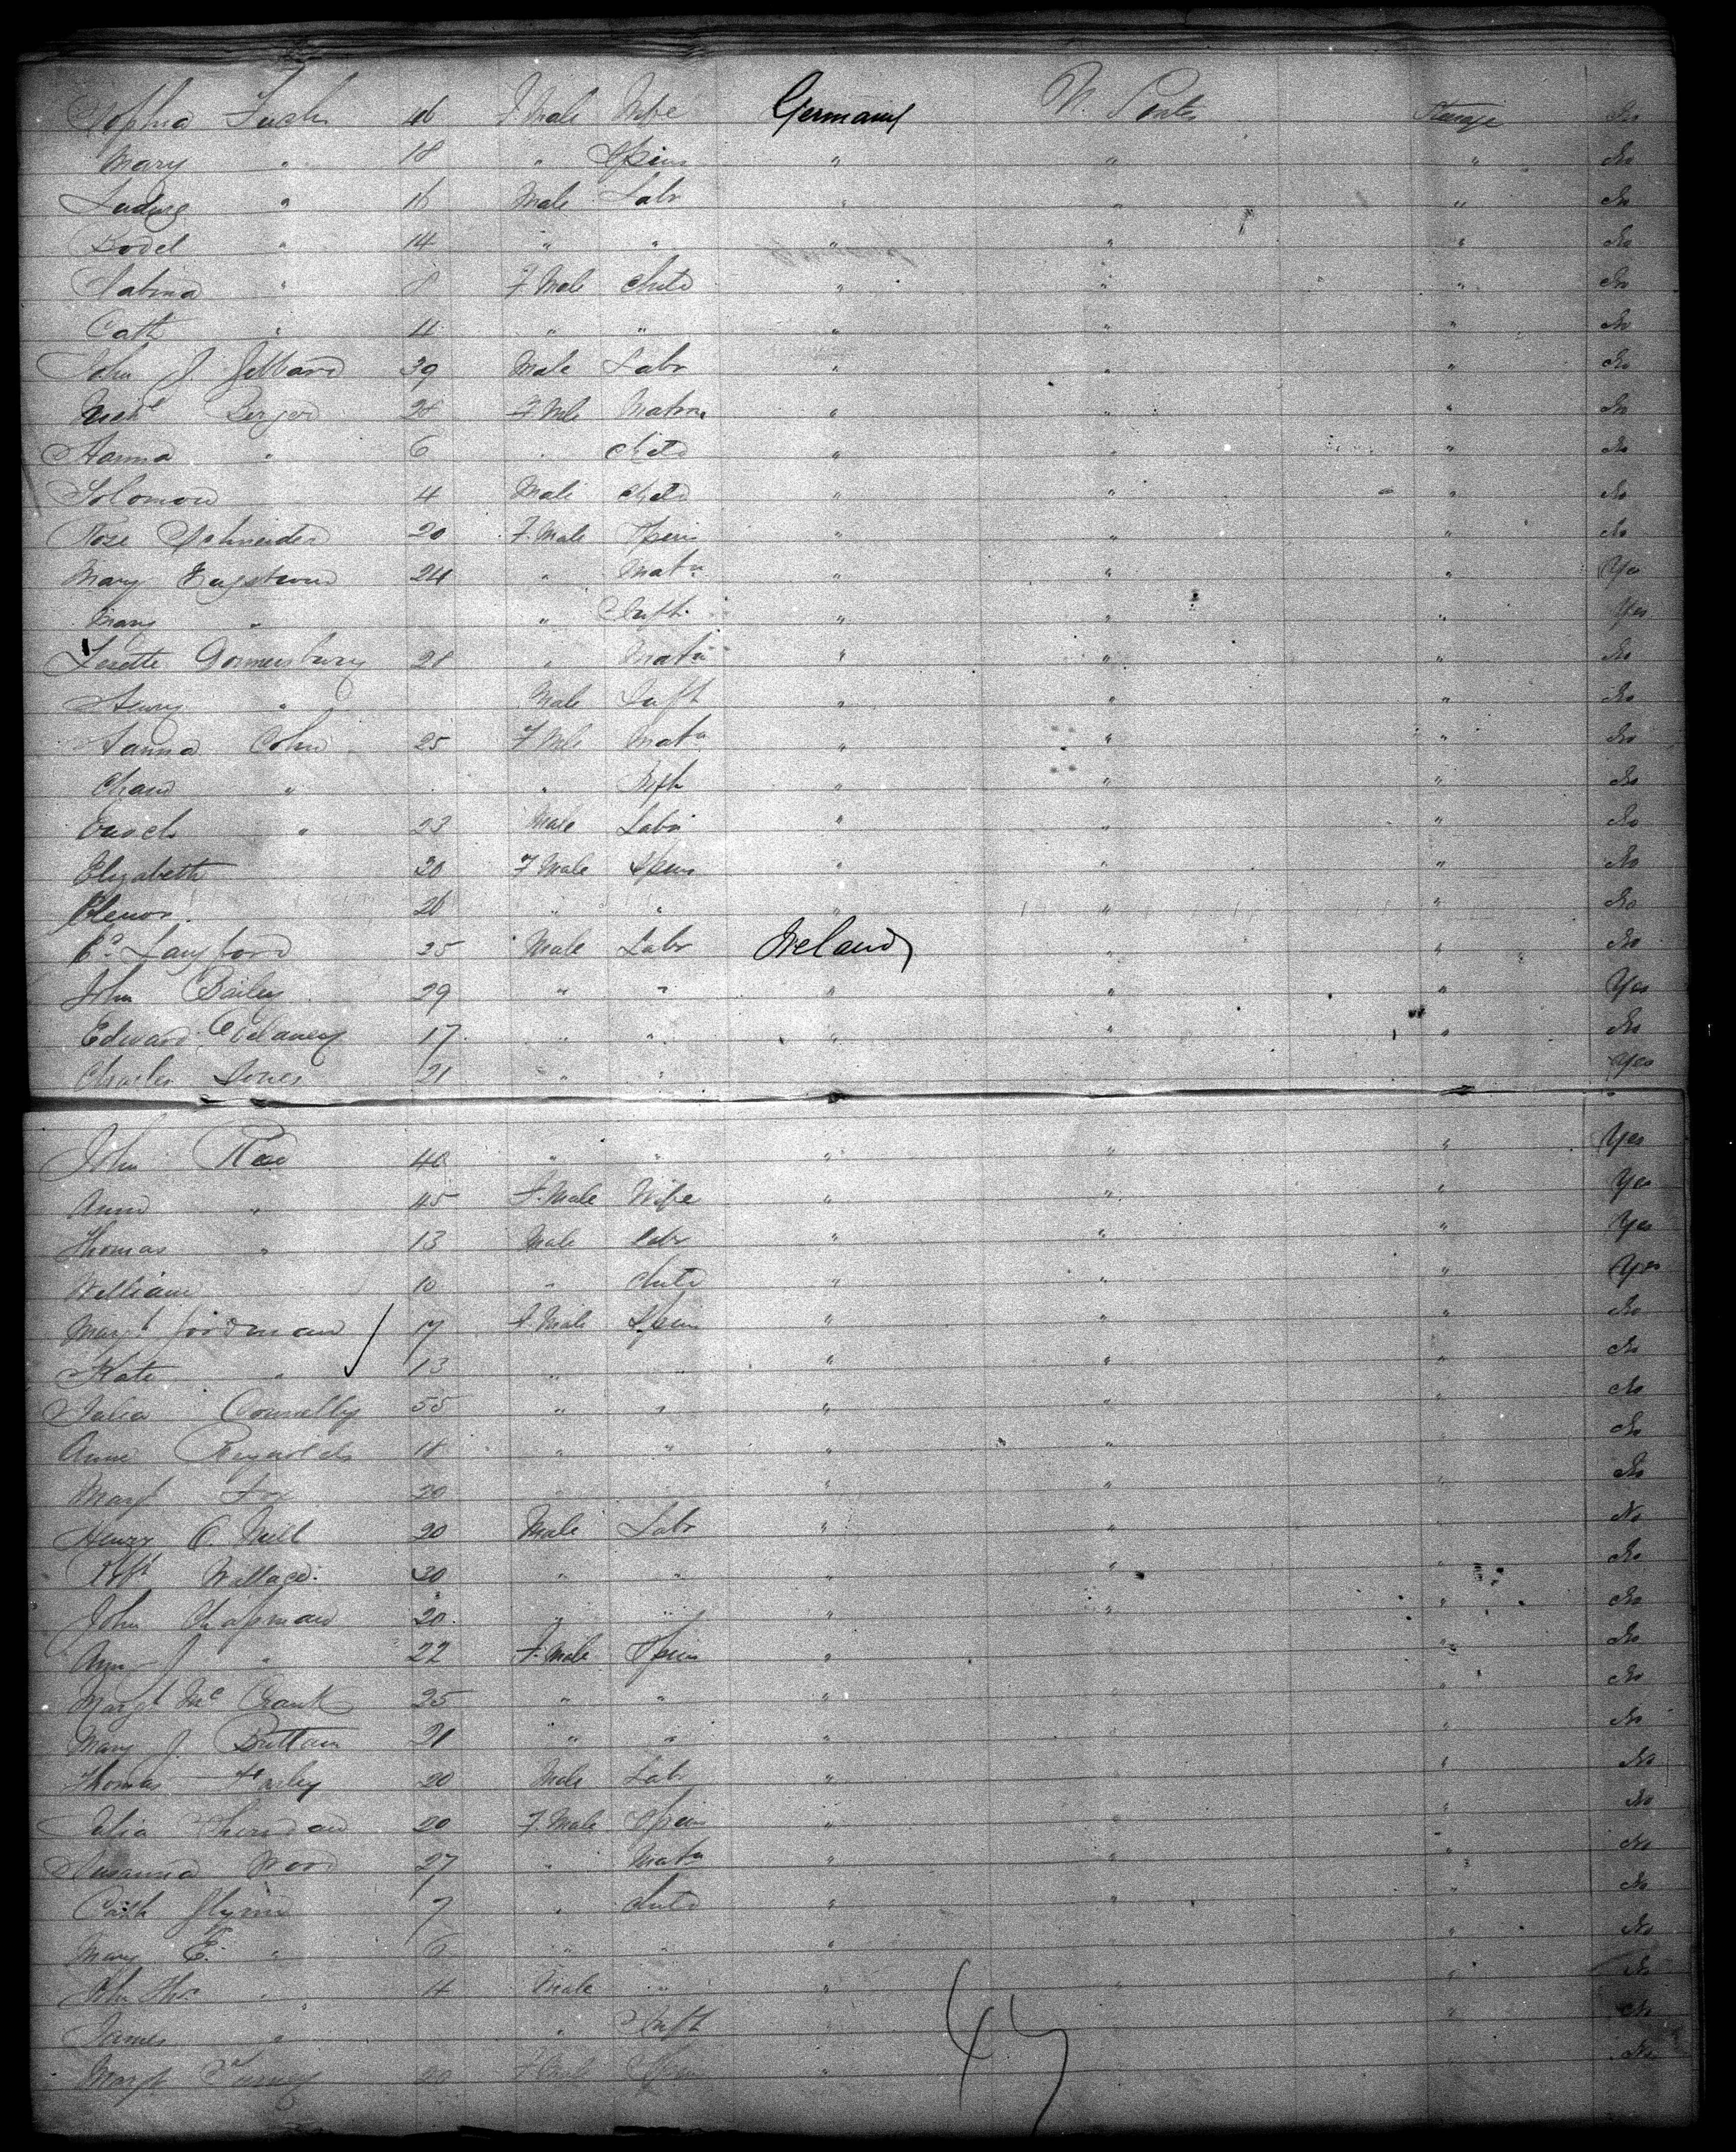 Sophia Fuchs 46 F Male Wife Germany U. States Steerage No
Mary " 18 " Spins " " " No
Ludwig " 16 Male Labr " " " No
" 14 " " " " " No
Sabina " 8 F Male Child " " " No
Cath " 4 " " " " " No
John J. 39 Male Labr " " " No
Berger 28 F Male Matrn " " " No
Hanna " 6 " Child " " " No
Solomon 4 Male Child " " " No
Rose Schneider 20 F. Male Spins " " " No
Mary 24 " Matn " " " Yes
Mary " " Inft " " " Yes
Lesette 28 " Matn " " " No
Henry " Male Inft " " " No
Hanna Cohn 25 F Male Matn " " " No
" " Inft " " " No
Enoch " 23 Male Labr " " " No
Elizabeth 20 F Male Spins " " " No
Elenor 26 " " " " " No
Langford 25 Male Labr Ireland " " No
John Bailey 29 " " " " " Yes
Edward Delaney 17 " " " " " No
Charles Jones 21 " " Yes
John Roe 40 " " " " " Yes
Anne " 45 F. Male Wife " " " Yes
Thomas " 13 Male Labr " " " Yes
William 10 " Child " " " Yes
Margt Goodman 17 F. Male Spins " " " No
Kate " 13 " " " " " No
Julia Connelly 55 " " " " " No
Anne Reynolds 18 " " " " No
Margt Fox 20 " " " " No
Henry O. Neill 20 Male Labr " " " No
Wallace 30 " " " " " No
John Chapman 20 " " " " " No
Ann J " 22 F. Male Spins " " No
Margt Mc 25 " " " " No
Mary J. Brittain 21 " " " " No
Thomas Farley 20 Male Labr " " No
Julia Sheridan 20 F. Male Spins " " No
Susanna Wood 27 " Matn " " " No
Cath Flynn 7 " Child " " " No
Mary E. " 6 " " " " No
John Thos " 4 Male " " " No
James " " Inft " No
Margt 20 F Male Spins " No
47